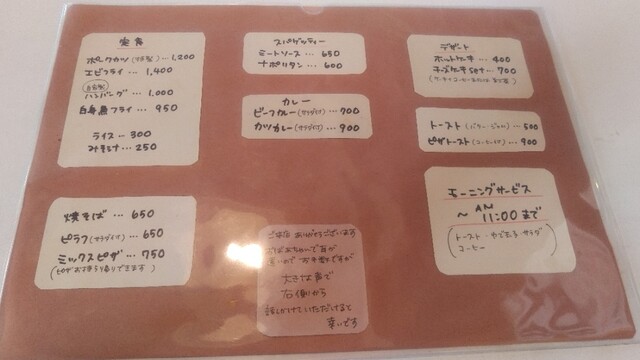 定食
ポークカツ … 1,200
エビフライ … 1,400
ハンバーグ … 1,000
白身魚フライ … 950
ライス … 300
みそ汁 … 250
スパゲッティー
ミートソース … 650
ナポリタン … 600
カレー
ビーフカレー(サラダ付) … 700
カツカレー(サラダ付) … 900
デザート
ホットケーキ … 400
チーズケーキset … 700
トースト(バター・ジャム) … 500
ピザトースト … 900
焼そば … 650
ピラフ(サラダ付) … 650
ミックスピザ … 750
(ピザお持ち帰りできます)
ご来店 ありがとうございます
大きな声で
右側から
話しかけていただけると
幸いです
モーニングサービス
～AM 11:00まで
トースト・ゆでたまご・サラダ
コーヒー